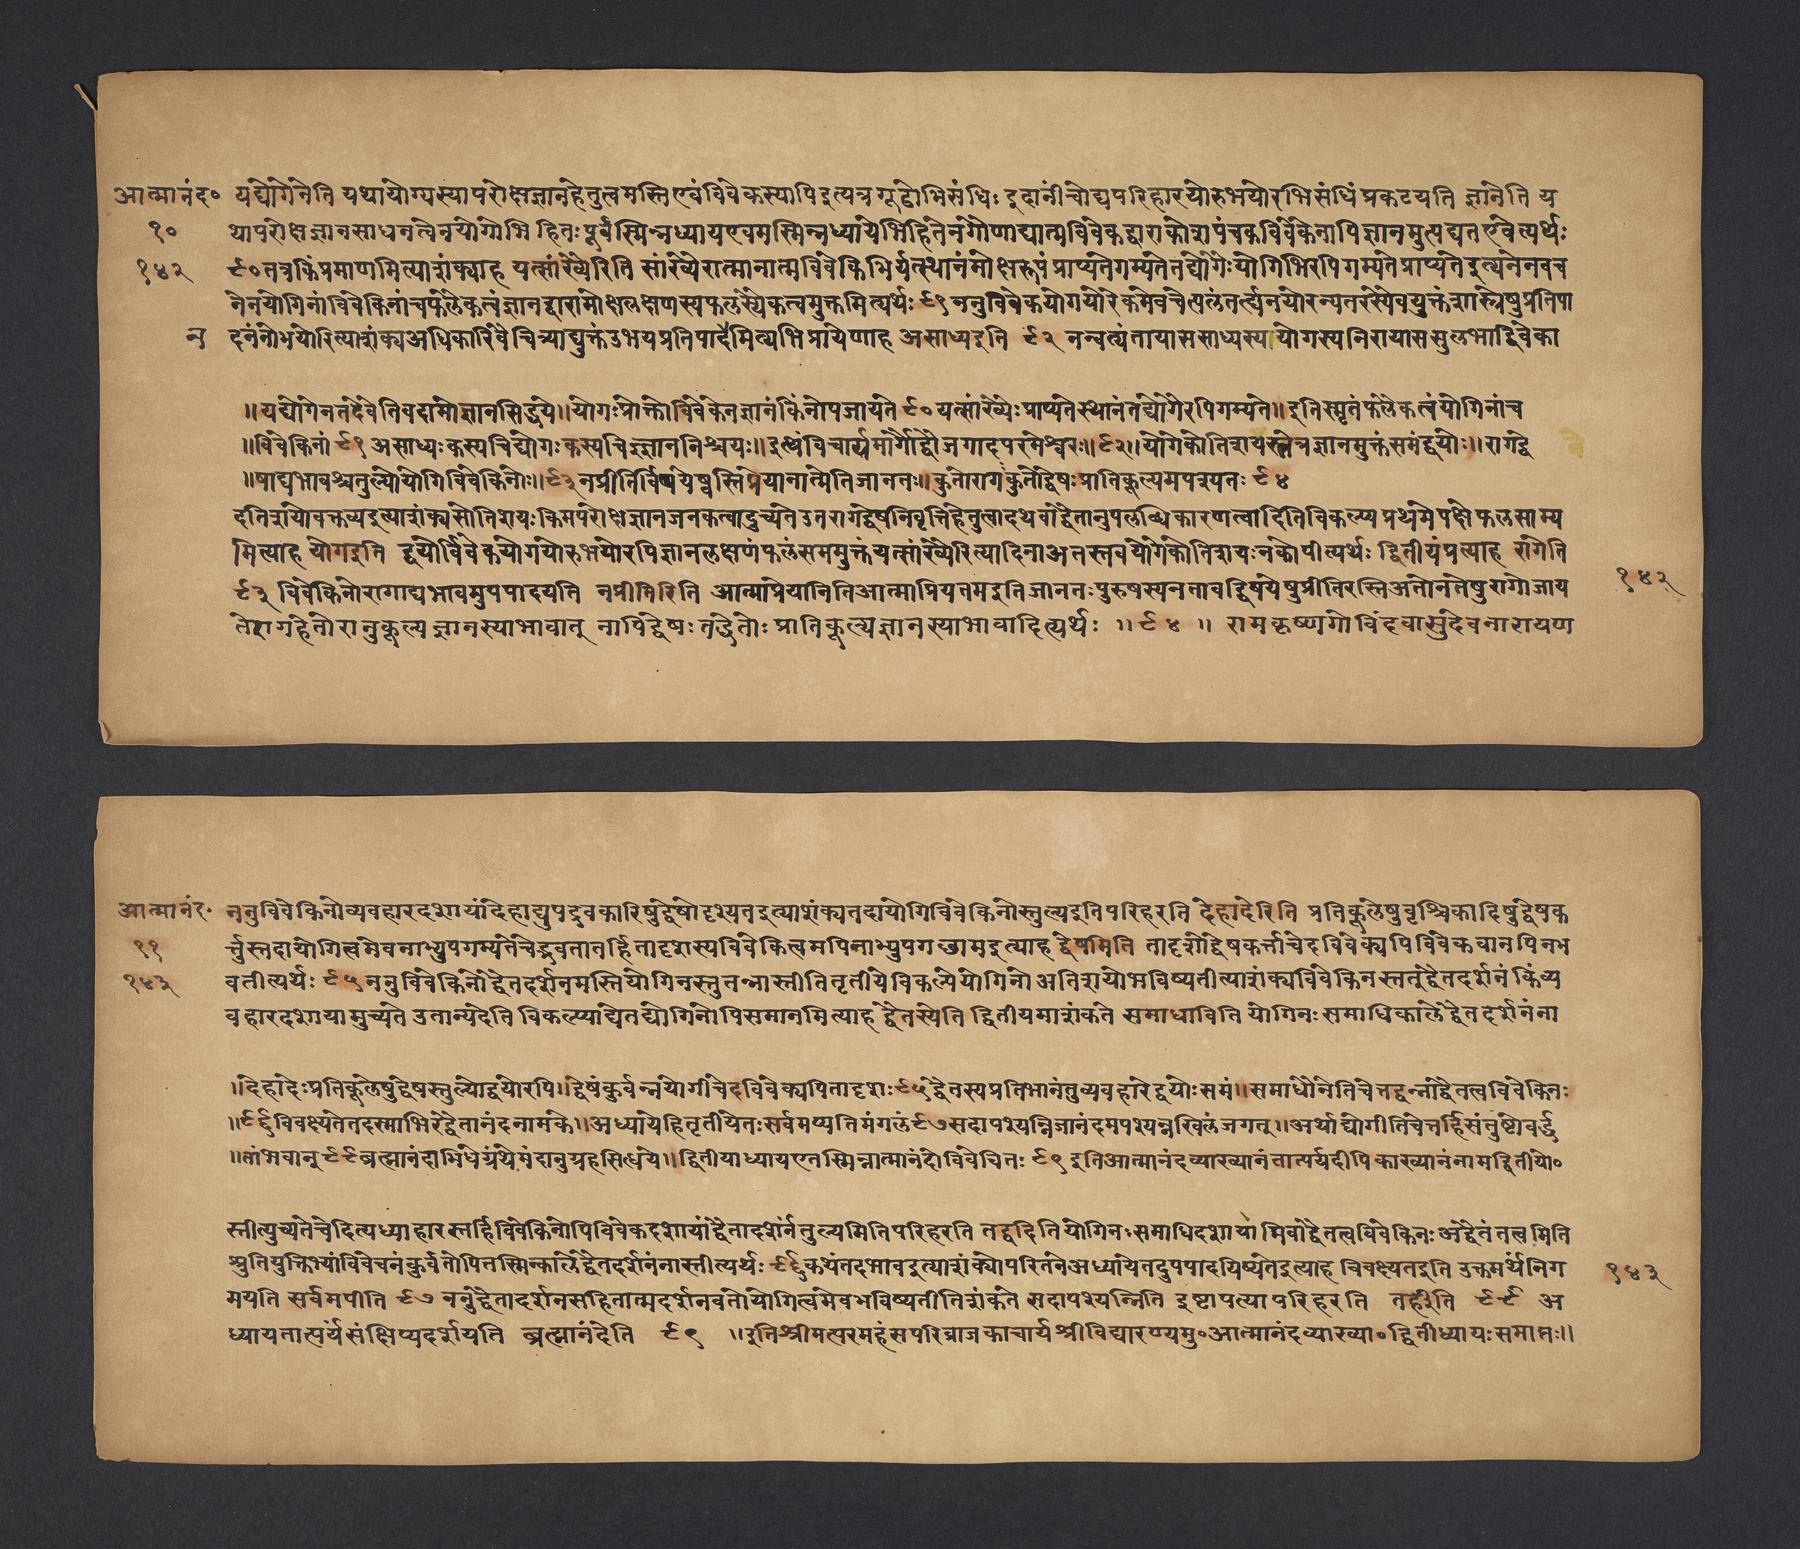 आत्मानंद० यद्योगेनेति यथायोग्यस्यापरोक्षज्ञानहेतुत्वमस्तिएवंविवेकस्यापिइत्यत्रगूढोभिसंधिः इदानींचोद्यपरिहारयोरुभयोरभिसंधिंप्रकटयति ज्ञानेति य
१० थापरोक्षज्ञानसाधनत्वेनयोगोभि हितःपूर्वस्मिन्नध्यायएवमस्मिन्नध्यायेभिहितेनगौणाद्यात्मविवेकद्वाराकोशपंचकविवेकेनापिज्ञानमुत्पद्यतएवेत्यर्थः
१४२ ९०तत्रकिंप्रमाणमित्याशंक्याह यत्सांख्यैरिति सांख्यैरात्मानात्मविवेकिभिर्यत्स्थानंमोक्षरूपं प्राप्यतेगम्यतेतद्योगैःयोगिभिरपिगम्यतेप्राप्यतेइत्यनेनवच
नेनयोगिनांविवेकिनांचफलैकत्वंज्ञानद्वारामोक्षलक्षणस्यफलस्यैकत्वमुक्तमित्यर्थः ९१ ननुविवेकयोगयोरेकमेवचेत्फलंतर्ह्यनयोरन्यतरस्यैवयुक्तंशास्त्रेषुप्रतिपा
न दनंनोभयोरित्याशंक्यअधिकारिवैचित्र्याद्युक्तंउभयप्रतिपादनमित्यभिप्रायेणाह असाध्यइति ९२ नन्वत्यंतायाससाध्यस्ययोगस्यनिरायाससुलभाद्विवेका
॥यद्योगेनतदेवेतिवदामोज्ञानसिद्धये॥योगःप्रोक्तोविवेकेनज्ञानंकिंनोपजायते ९० यत्सांख्यैःप्राप्यतेस्थानंतद्योगैरपिगम्यते॥इतिस्मृतंफलैकत्वंयोगिनांच
॥विवेकिनां ९१ असाध्यःकस्यचिद्योगःकस्यचिज्ज्ञाननिश्चयः॥इत्थंविचार्यमार्गौद्वौजगादपरमेश्वरः॥९२॥योगेकोतिशयस्तेत्रज्ञानमुक्तंसमंद्वयोः॥रागद्वे
॥षाद्यभावश्चतुल्योयोगिविवेकिनोः॥९३नप्रीतिर्विषयेष्वस्तिप्रेयानात्मेतिजानतः॥कुतोरागःकुतोद्वेषःप्रातिकूल्यमपश्यतः ९४
दतिशयोवक्तव्यइत्याशंक्यसोतिशयःकिमपरोक्षज्ञानजनकत्वादुच्यतेउतरागद्वेषनिवृत्तिहेतुत्वादथवाद्वैतानुपलब्धिकारणत्वादितिविकल्प्यप्रथमेपक्षेफलसाम्य
मित्याह योगइति द्वयोर्विवेकयोगयोरुभयोरपिज्ञानलक्षणंफलंसममुक्तंयत्सांख्यैरित्यादिनाअतस्तवयोगेकोतिशयःनकोपीत्यर्थः द्वितीयंप्रत्याह रागेति
९३ विवेकिनोरागाद्यभावमुपपादयति नप्रीतिरिति आत्माप्रेयानितिआत्माप्रियतमइतिजानतःपुरुषस्यनतावद्विषयेषुप्रीतिरस्तिअतोनतेषुरागोजाय १४२
तेरागहेतोरानुकूल्यज्ञानस्याभावात् नापिद्वेषःतद्धेतोःप्रातिकूल्यज्ञानस्याभावादित्यर्थः ॥९४॥ रामकृष्णगोविंदवासुदेवनारायण
आत्मानंद० ननुविवेकिनोव्यवहारदशायांदेहाद्युपद्रवकारिषुद्वेषोदृश्यतइत्याशंक्यतदायोगिविवेकिनोस्तुल्यइतिपरिहरति देहादेरिति प्रतिकूलेषुवृश्चिकादिषुद्वेषक
११ र्त्तुस्तदायोगित्वमेवनाभ्युपगम्यतेचेद्भवतातर्हितादृशस्यविवेकित्वमपिनाभ्युपगच्छामइत्याह द्वेषमिति तादृशोद्वेषकर्त्ताचेदविवेक्यपिविवेकवानपिनभ
१४३ वतीत्यर्थः ९५ ननुविवेकिनोद्वैतदर्शनमस्तियोगिनस्तुतन्नास्तीतितृतीयेविकल्पेयोगिनो अतिशयोभविष्यतीत्याशंक्यविवेकिनस्तत्द्वैतदर्शनं किंव्य
वहारदशायामुच्यते उतान्यदेति विकल्प्याद्येतद्योगिनोपिसमानमित्याह द्वैतस्येति द्वितीयमाशंकते समाधाविति योगिनःसमाधिकालेद्वैतदर्शनंना
॥देहादेःप्रतिकूलेषुद्वेषस्तुल्योद्वयोरपि॥द्वेषंकुर्वन्नयोगीचेदविवेक्यपितादृशः९५द्वैतस्यप्रतिभानंतुव्यवहारेद्वयोःसमं॥समाधौनेतिचेत्तद्वन्नाद्वैतत्वविवेकिनः
॥९६विवक्ष्यतेतदस्माभिरद्वैतानंदनामके॥अध्यायेहितृतीयेतःसर्वमप्यतिमंगलं९७सदापश्यन्निजानंदमपश्यन्नखिलंजगत्॥अर्थाद्योगीतिचेत्तर्हिसंतुष्टोवर्द्ध
॥तांभवान् ९८ब्रह्मानंदाभिधेग्रंथेमंदानुग्रहसिद्धये॥द्वितीयाध्यायएतस्मिन्नात्मानंदोविवेचितः ९९ इतिआत्मानंदव्याख्यानंतात्पर्यदीपिकाख्यानंनामद्वितीयो०
स्तीत्युच्यतेचेदित्यध्याहारस्तर्हिविवेकिनोपिविवेकदशायांद्वैतादर्शनंतुल्यमितिपरिहरति तद्वदितियोगिनःसमाधिदशायामिवाद्वैतत्वविवेकिनःअद्वैतंतत्वमिति
श्रुतियुक्तिभ्यांविवेचनंकुर्वतोपितस्मिन्कालेद्वैतदर्शनंनास्तीत्यर्थः ९६कथंतदभावइत्याशंक्योपरितनेअध्यायेतदुपपादयिष्यतेइत्याह विवक्ष्यतइति उक्तमर्थंनिग १४३
मयति सर्वमपीति ९७ ननुद्वैतादर्शनसहितात्मदर्शनवतोयोगित्वमेवभविष्यतीतिशंकते सदापश्यन्निति इष्टापत्यापरिहरति तर्हीति ९८ अ
ध्यायतात्पर्यंसंक्षिप्यदर्शयति ब्रह्मानंदेति ९९ ॥इतिश्रीमत्परमहंसपरिव्राजकाचार्यश्रीविद्यारण्यमु०आत्मानंदव्याख्या०द्वितीध्यायःसमाप्तः॥